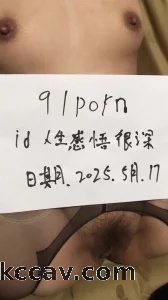 91porn
id 人生感悟很深
日期.2025.5月.17
kccav.com